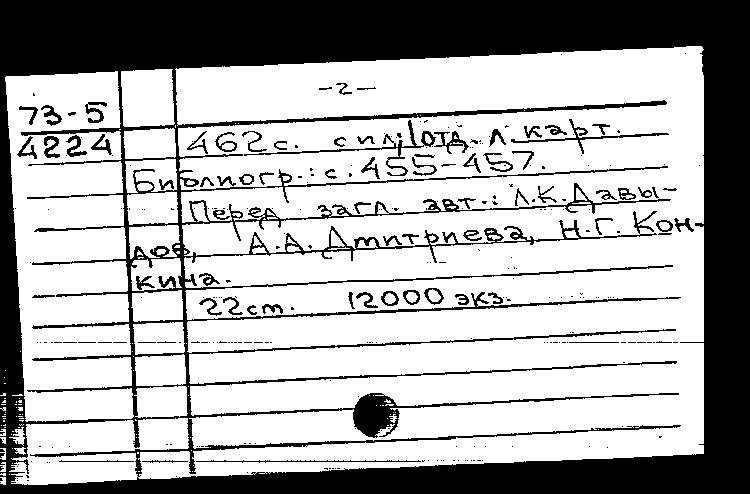 -2-
73-5
4224
462с. с ил; 1 отд. л. карт.
Библиогр.: с. 455-457.
Перед загл. авт.: Л.К. Давы-
дов, А.А. Дмитриева, Н.Г. Кон-
кина.
22см. 12000 экз.